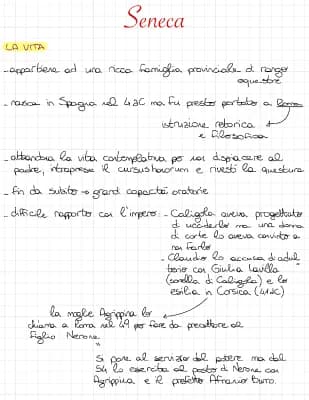 Seneca
LA VITA
- appartiene ad una ricca famiglia provinciale di rango
equestre
- nasce in Spagna nel 4 aC ma fu presto portato a Roma
istruzione retorica
e filosofica
- abbandona la vita contemplativa per non dispiacere al
padre, intraprese il cursus honorum e rivestì la questura
- fin da subito → grandi capacità oratorie
- difficile rapporto con l'impero: - Caligola aveva progettato
di ucciderlo ma una donna
di corte lo aveva convinto a
non farlo
- Claudio lo accusa di adul
terio con Giulia Livilla
(sorella di Caligola) e lo
esilia in Corsica (41 dC)
la moglie Agrippina lo
chiama a Roma nel 49 per fare da precettore al
figlio Nerone
Si pone al servizio del potere ma dal
54 lo esercita al posto di Nerone con
Agrippina e il prefetto Afranio Burro.